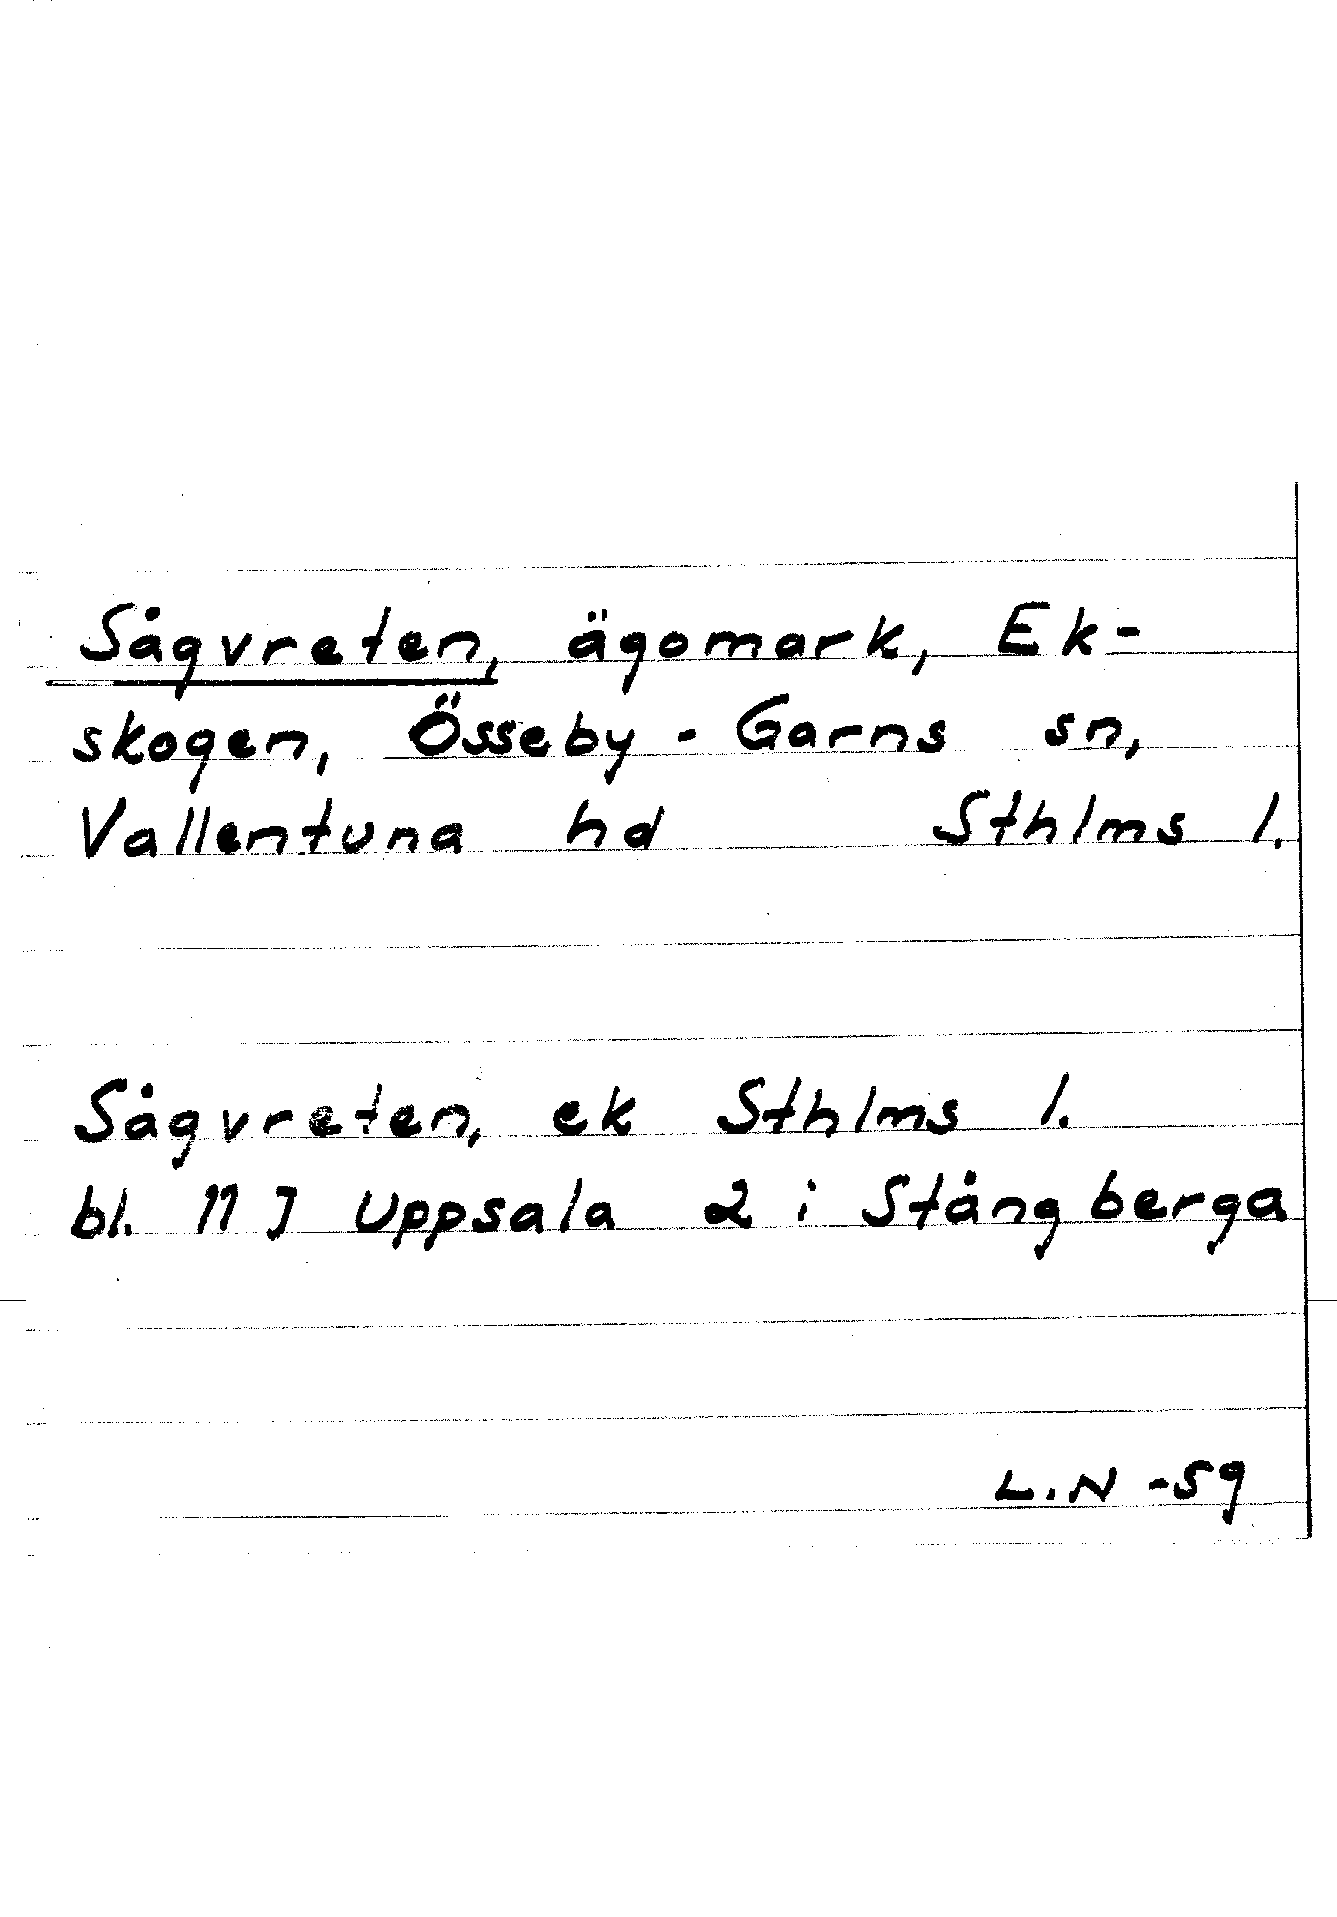 Sågvreten, ägomark, Ek-
skogen, Össeby - Garns sn,
Vallentuna hd Sthlms l.
Sågvreten, ek Sthlms l.
bl. 11 J Uppsala 2 i Stångberga
L.N -59